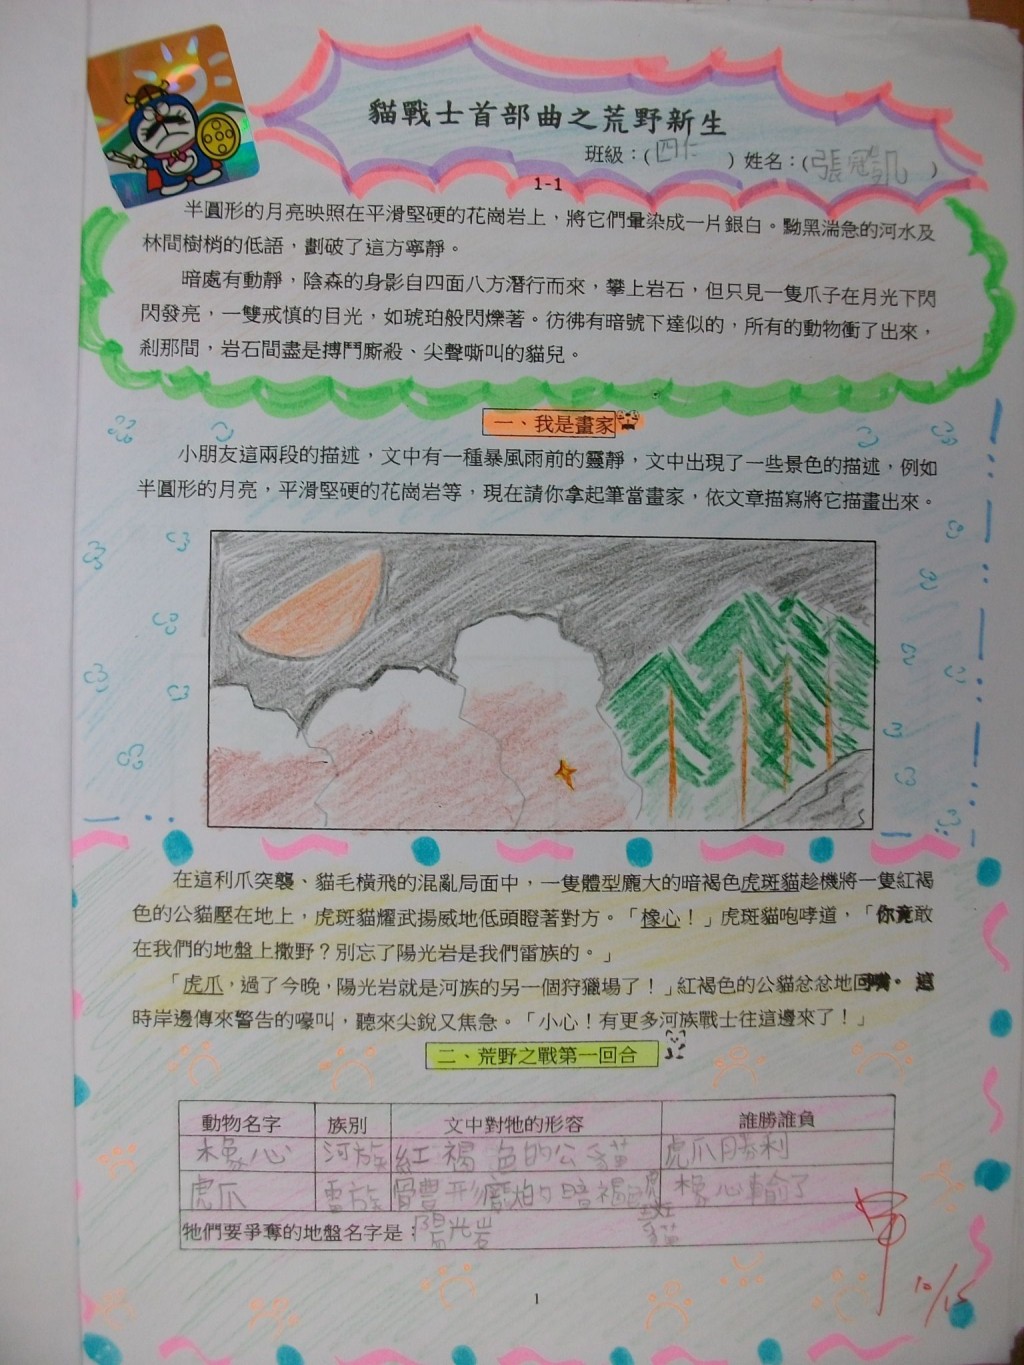 貓戰士首部曲之荒野新生
班級：(四仁 ) 姓名：(張冠凱 )
1-1
半圓形的月亮映照在平滑堅硬的花崗岩上，將它們暈染成一片銀白。黝黑湍急的河水及
林間樹梢的低語，劃破了這方寧靜。
暗處有動靜，陰森的身影自四面八方潛行而來，攀上岩石，但只見一隻爪子在月光下閃
閃發亮，一雙戒慎的目光，如琥珀般閃爍著。彷彿有暗號下達似的，所有的動物衝了出來，
剎那間，岩石間盡是搏鬥廝殺、尖聲嘶叫的貓兒。
一、我是畫家
小朋友這兩段的描述，文中有一種暴風雨前的靈靜，文中出現了一些景色的描述，例如
半圓形的月亮，平滑堅硬的花崗岩等，現在請你拿起筆當畫家，依文章描寫將它描畫出來。
在這利爪突襲、貓毛橫飛的混亂局面中，一隻體型龐大的暗褐色虎斑貓趁機將一隻紅褐
色的公貓壓在地上，虎斑貓耀武揚威地低頭瞪著對方。「橡心！」虎斑貓咆哮道，「你竟敢
在我們的地盤上撒野？別忘了陽光岩是我們雷族的。」
「虎爪，過了今晚，陽光岩就是河族的另一個狩獵場了！」紅褐色的公貓忿忿地回嘴。這
時岸邊傳來警告的嚎叫，聽來尖銳又焦急。「小心！有更多河族戰士往這邊來了！」
二、荒野之戰第一回合
動物名字 族別 文中對牠的形容 誰勝誰負
橡心 河族 紅褐色的公貓 虎爪勝利
虎爪 雷族 體型龐大的暗褐色虎斑貓 橡心輸了
牠們要爭奪的地盤名字是：陽光岩
10/15
1